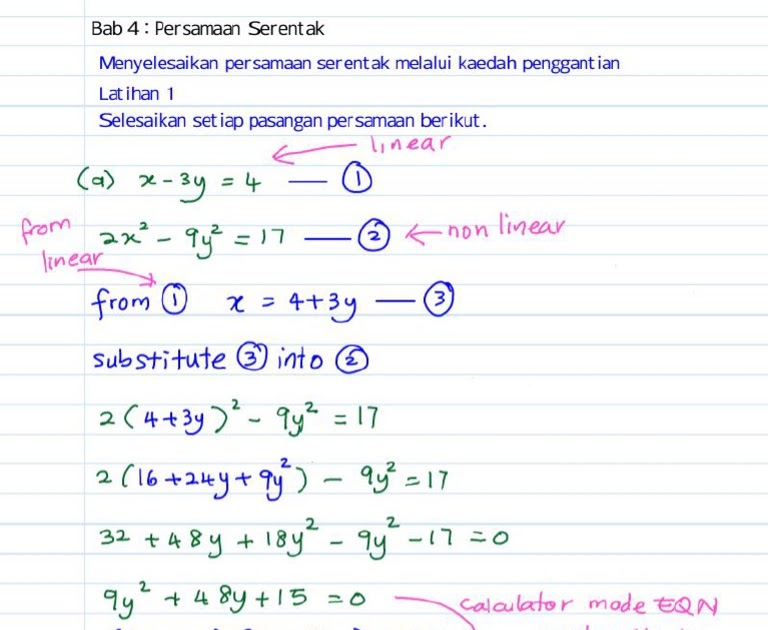 Bab 4 : Persamaan Serentak
Menyelesaikan persamaan serentak melalui kaedah penggantian
Latihan 1
Selesaikan setiap pasangan persamaan berikut.
← linear
(a) x - 3y = 4 — ①
from linear
2x² - 9y² = 17 — ② ← non linear
from ① x = 4+3y — ③
substitute ③ into ②
2(4+3y)² - 9y² = 17
2(16+24y+9y²) - 9y² = 17
32 + 48y + 18y² - 9y² - 17 = 0
9y² + 48y + 15 = 0
calculator mode EQN